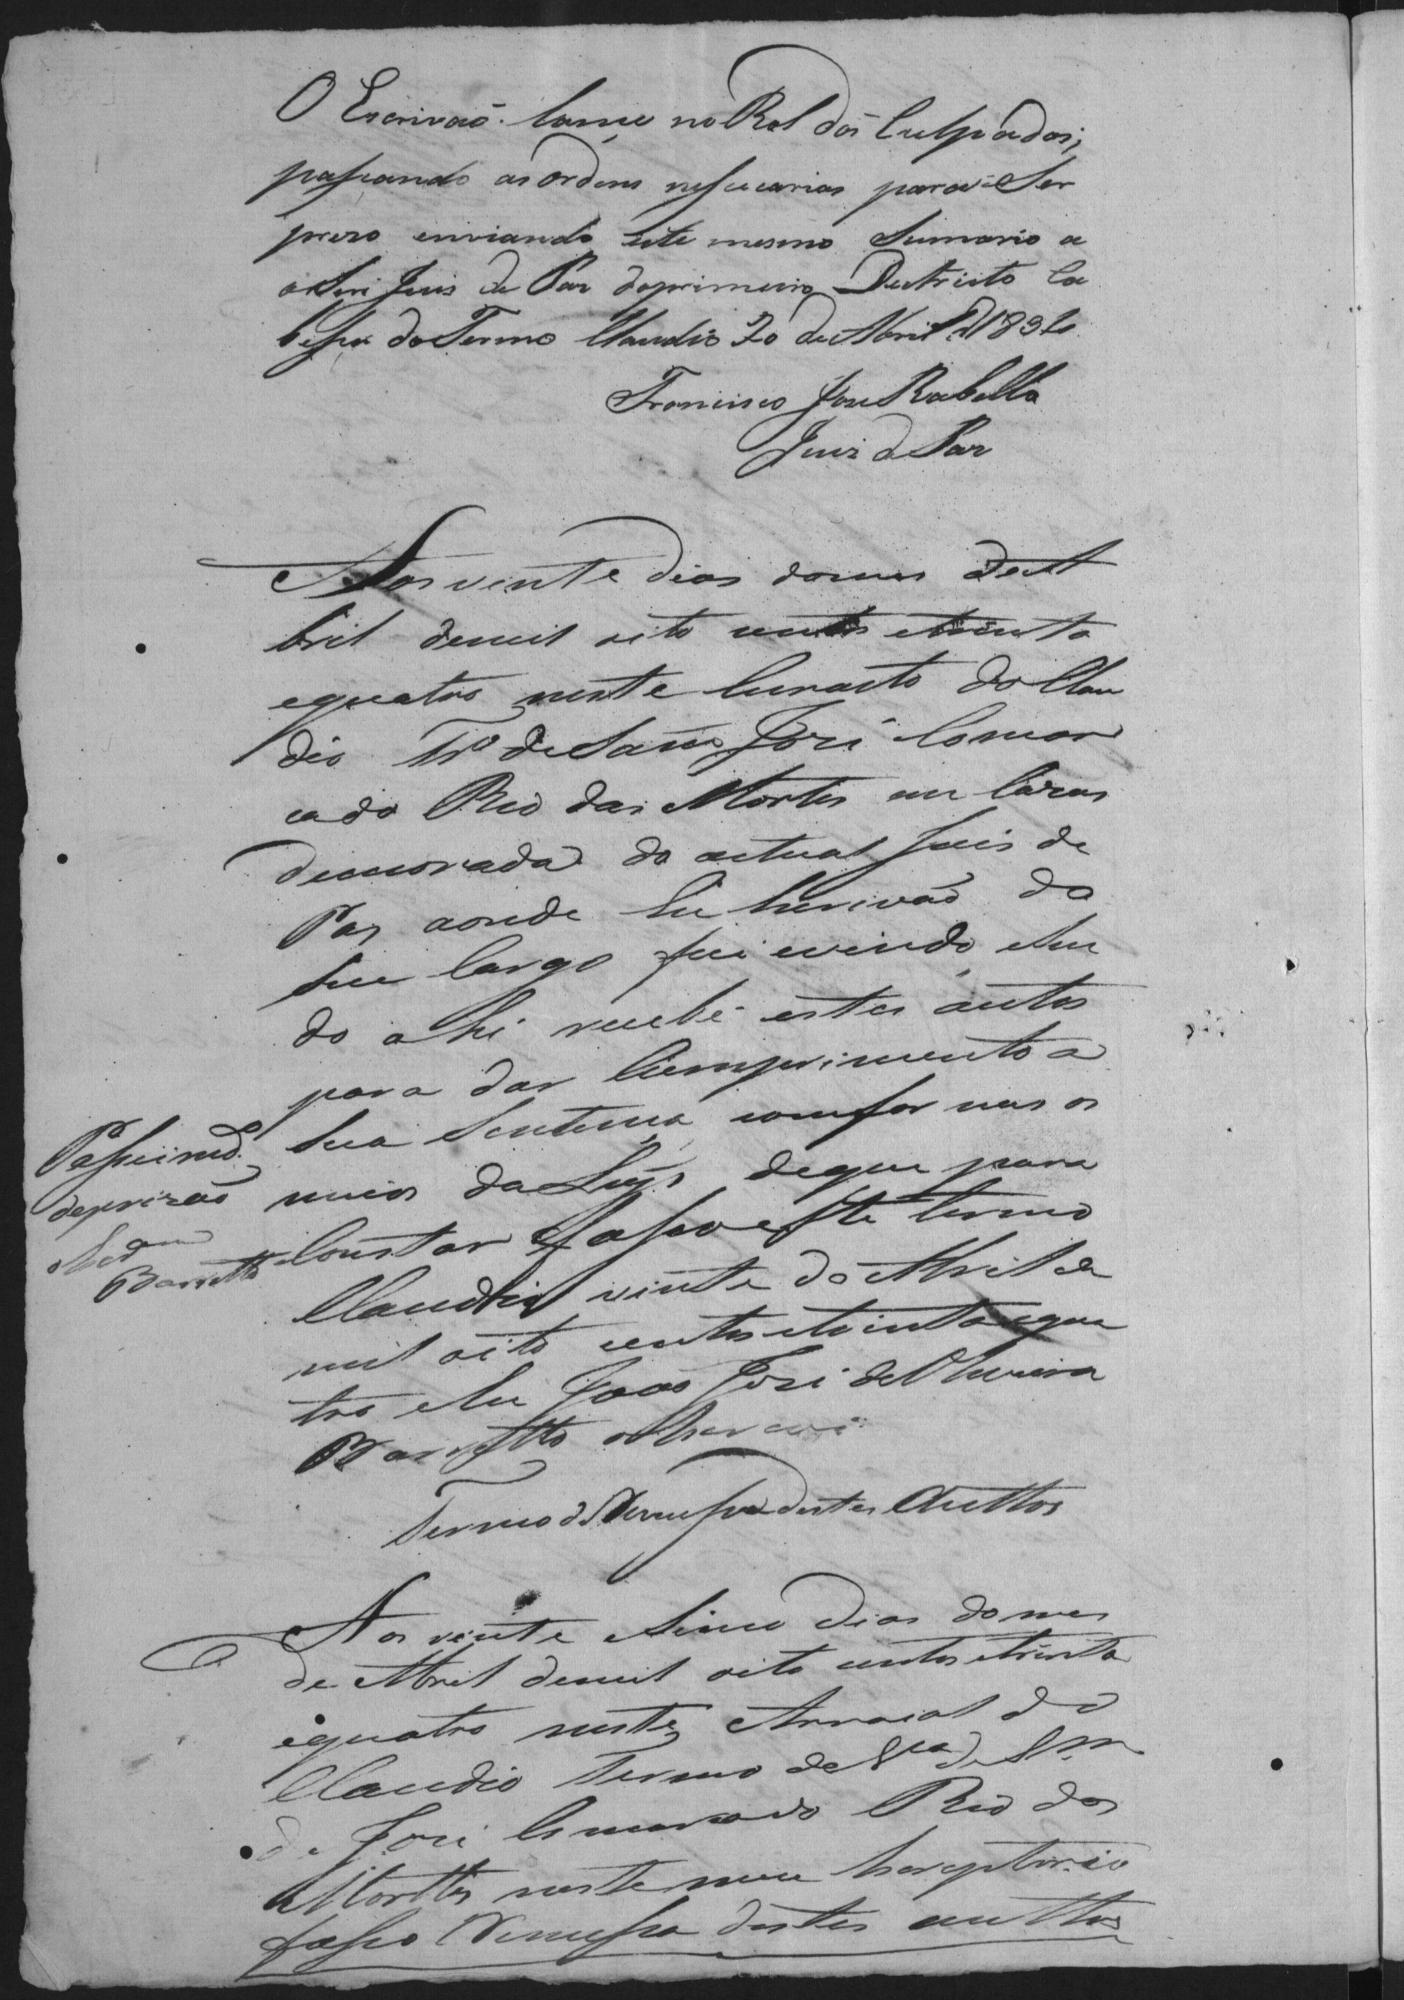 O Escrivaõ lance no Rol dos Culpados,
passando as ordens nessecarias para Ser
prezo enviando este mesmo Sumario a
o Snr Juis de Paz do primeiro Destricto Ca
bessa do Termo Claudio 20 de Abril d 1834
Francisco Jose Rabello
Juiz de Paz
Aos vente dias do mes de A
bril de mil oito centos e trinta
e quatro neste Curacto do Clau
dio Tr.º de Sam Jozé Comar
ca do Rio das Mortes em Cazas
de morada do actual Juis de
Paz aonde Eu Escrivaõ do
Seu Cargo fui e vindo e Sen
do ahi recebi estes autos
para dar Comprimento a
Sua Sentença comfor mos os
meios da Ley de que para
Constar fasso este termo
Claudio vinte de Abril de
mil oito centos e trinta e qua
tro e Eu Joaõ Jozé de Oliveira
Barretto o Escrevi
Passei md.º
de prizaõ
Barretto
Termo de Remessa destes Auttos
Aos vente e Sinco dias do mes
de Abril de mil oito centos e trinta
e quatro neste Arraial do
Claudio Termo de V.ª de S.m
de Jozé Comarca do Rio das
Morttes neste meu Escriptorio
fasso Remessa destes auttos